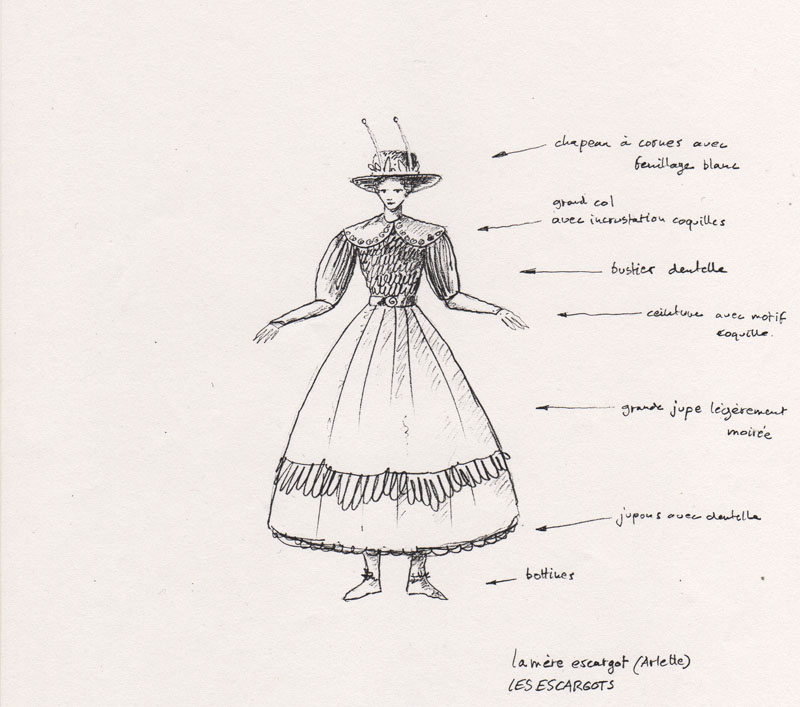 chapeau à cornes avec
feuillage blanc
grand col
avec incrustation coquilles
bustier dentelle
ceinture avec motif
coquille.
grande jupe légèrement
moirée
jupons avec dentelle
bottines
la mère escargot (Arlette)
LES ESCARGOTS